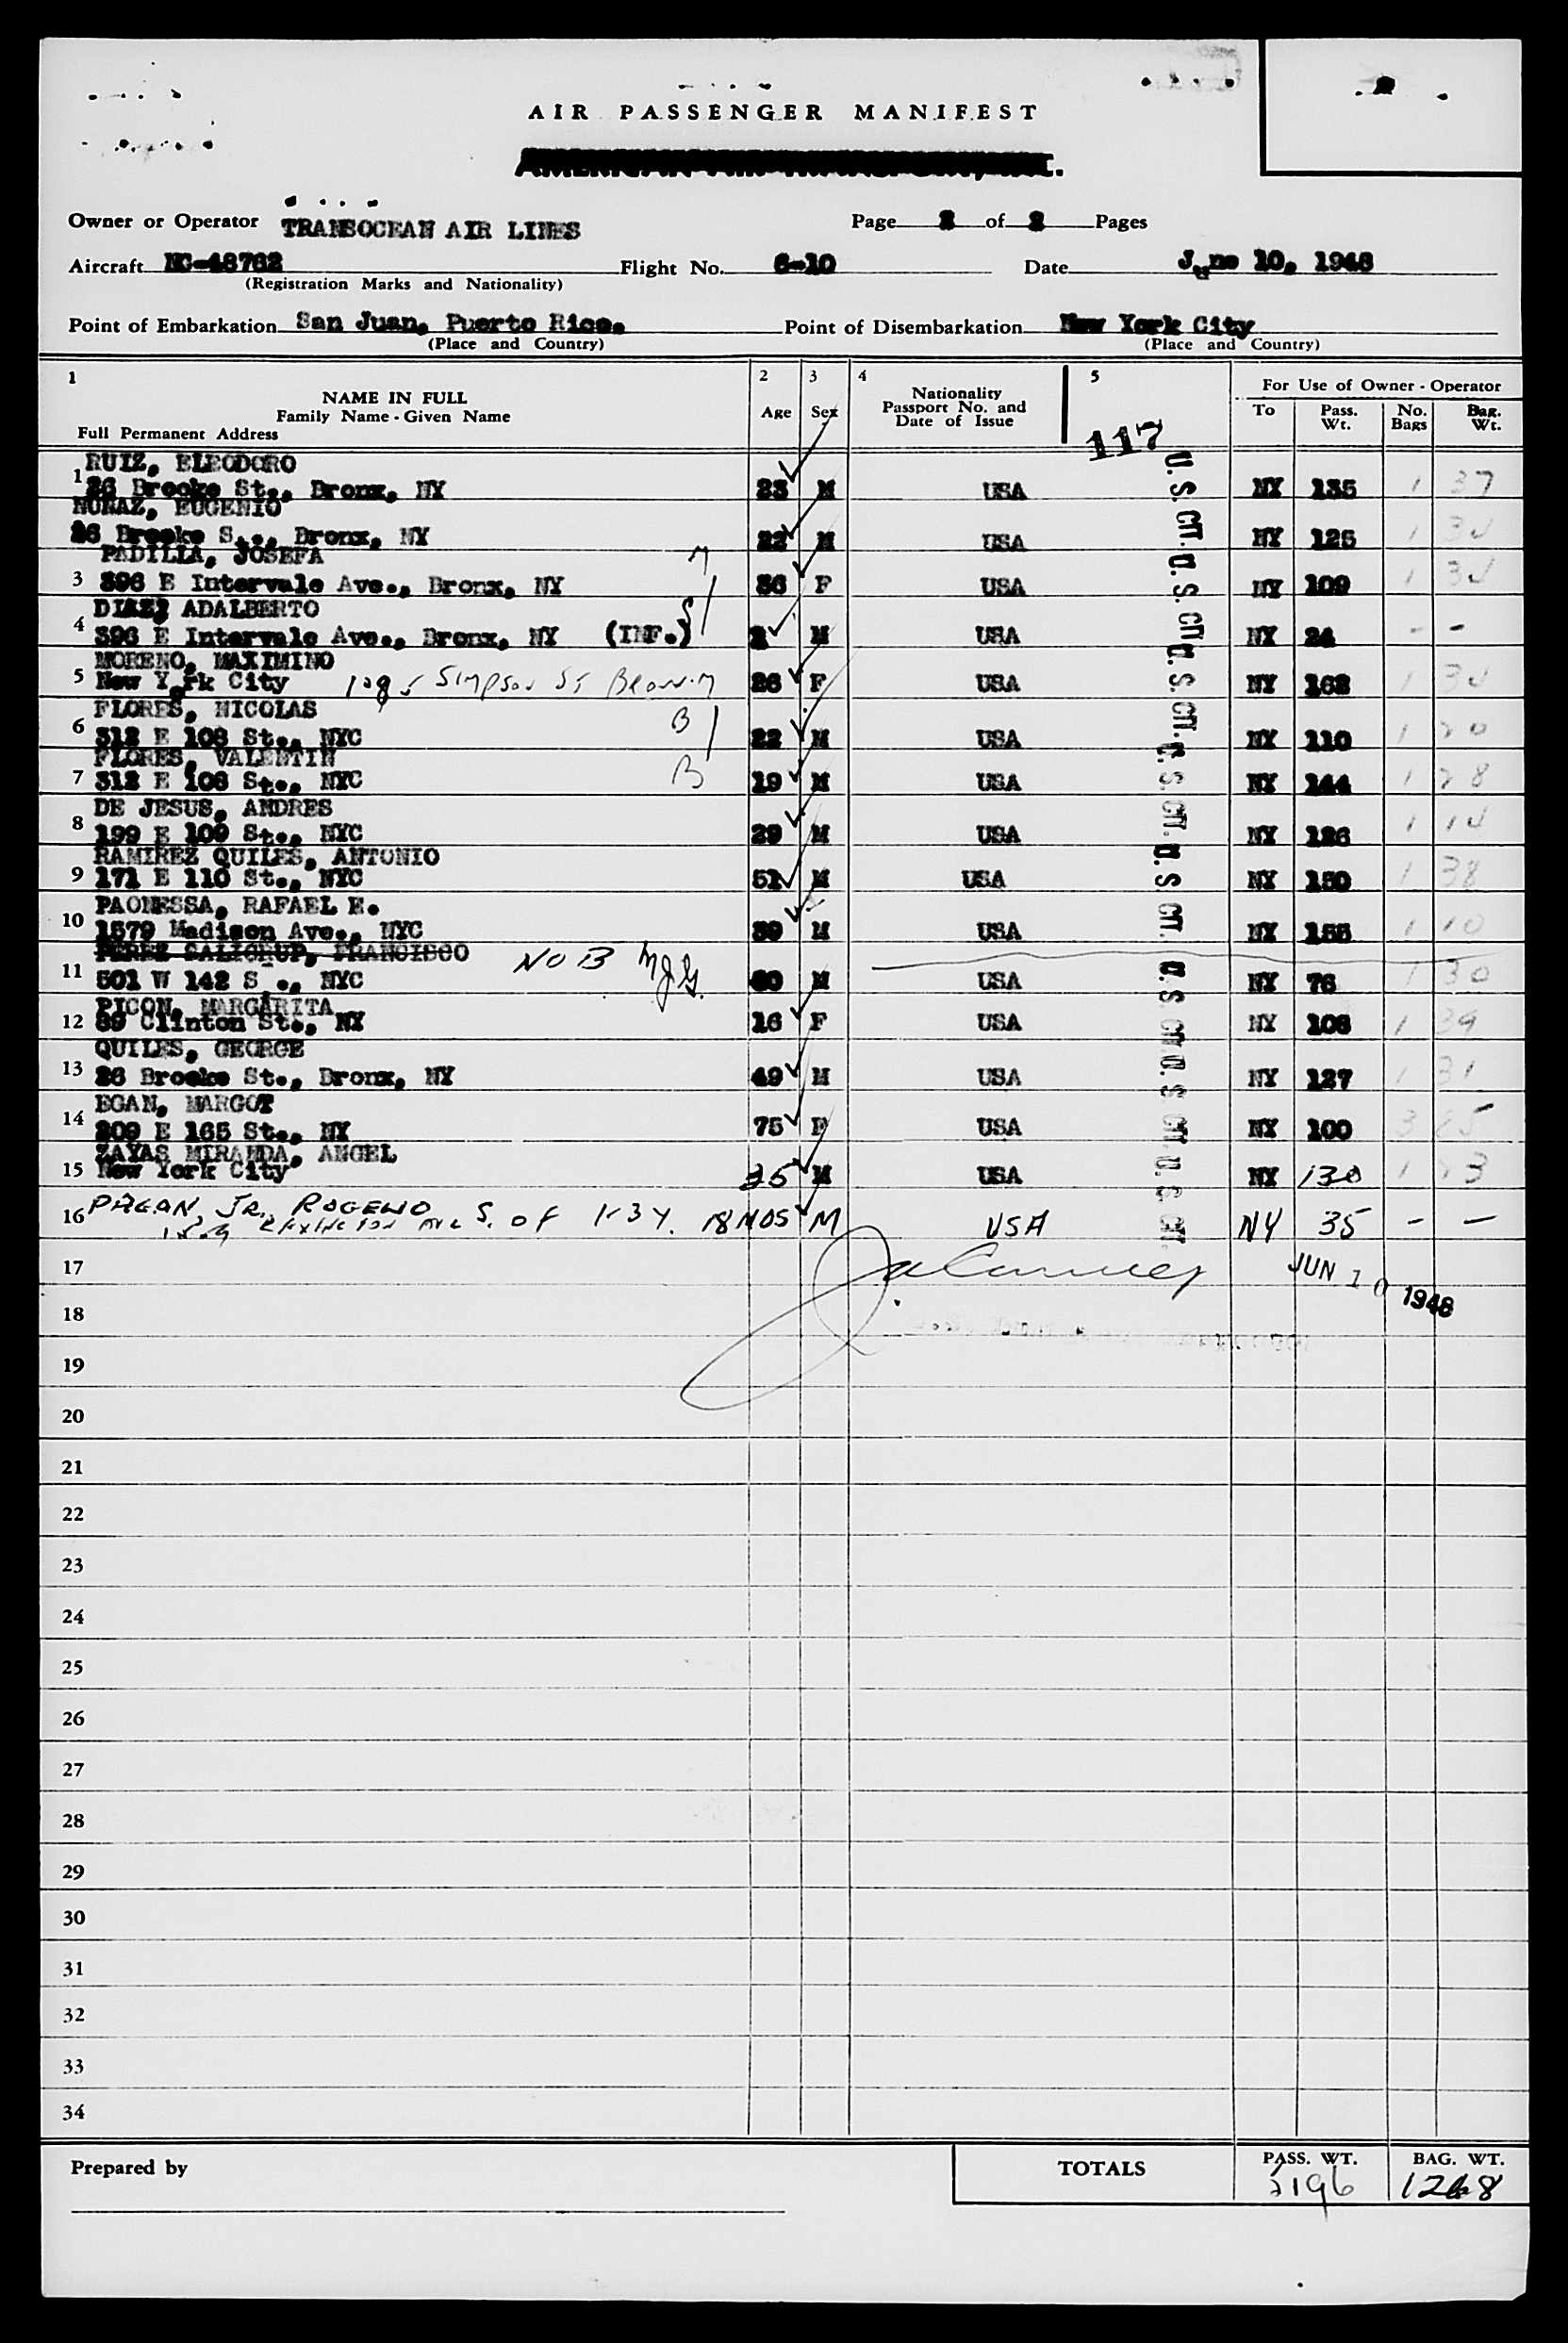 AIR PASSENGER MANIFEST
Owner or Operator TRANSOCEAN AIR LINES Page 2 of 2 Pages
Aircraft NC-48762 Flight No. 6-10 Date June 10, 1948
(Registration Marks and Nationality)
Point of Embarkation San Juan, Puerto Rico. Point of Disembarkation New York City
(Place and Country) (Place and Country)
1 2 3 4 5 For Use of Owner - Operator
NAME IN FULL Age Sex Nationality To Pass. No. Bag.
Family Name - Given Name Passport No. and Wt. Bags Wt.
Full Permanent Address Date of Issue
117
RUIZ, ELEODORO
1 26 Brooke St., Bronx, NY 23 M USA U.S. CIT. NY 135 1 37
NUNAZ, EUGENIO
26 Brooke S ., Bronx, NY 22 M USA U.S. CIT. NY 125 1
PADILLA, JOSEFA M
3 896 E Intervale Ave., Bronx, NY 36 F USA U.S. CIT. NY 109 1
DIAZ, ADALBERTO S
4 896 E Intervale Ave., Bronx, NY (INF.) 2 M USA U.S. CIT. NY 24 - -
MORENO, MAXIMINO
5 New York City Simpson St 26 F USA U.S. CIT. NY 162 1
FLORES, NICOLAS B
6 312 E 108 St., NYC 22 M USA U.S. CIT. NY 110 1 20
FLORES, VALENTIN B
7 312 E 108 St., NYC 19 M USA U.S. CIT. NY 144 1 28
DE JESUS, ANDRES
8 199 E 109 St., NYC 29 M USA U.S. CIT. NY 126 1 14
RAMIREZ QUILES, ANTONIO
9 171 E 110 St., NYC 51 M USA U.S. CIT. NY 150 1 38
PAONESSA, RAFAEL E.
10 1579 Madison Ave., NYC 39 M USA NY 155 1 10
PEREZ SALICRUP, FRANCISCO NOB MJG.
11 501 W 142 S ., NYC 60 M USA U.S. CIT. NY 76 1 30
PICON, MARGARITA
12 89 Clinton St., NY 16 F USA NY 106 1 39
QUILES, GEORGE
13 26 Brooke St., Bronx, NY 49 M USA U.S. CIT. NY 127 1 31
EGAN, MARGOT
14 209 E 165 St., NY 75 F USA NY 100 3
ZAYAS MIRANDA, ANGEL
15 New York City 25 M USA U.S. CIT. NY 130 1 23
16 PAGAN JR., ROGELIO S. of 1-34. 18 MOS M USA NY 35 - -
17 JUN 10 1948
18
19
20
21
22
23
24
25
26
27
28
29
30
31
32
33
34
Prepared by TOTALS PASS. WT. BAG. WT.
5196 1268